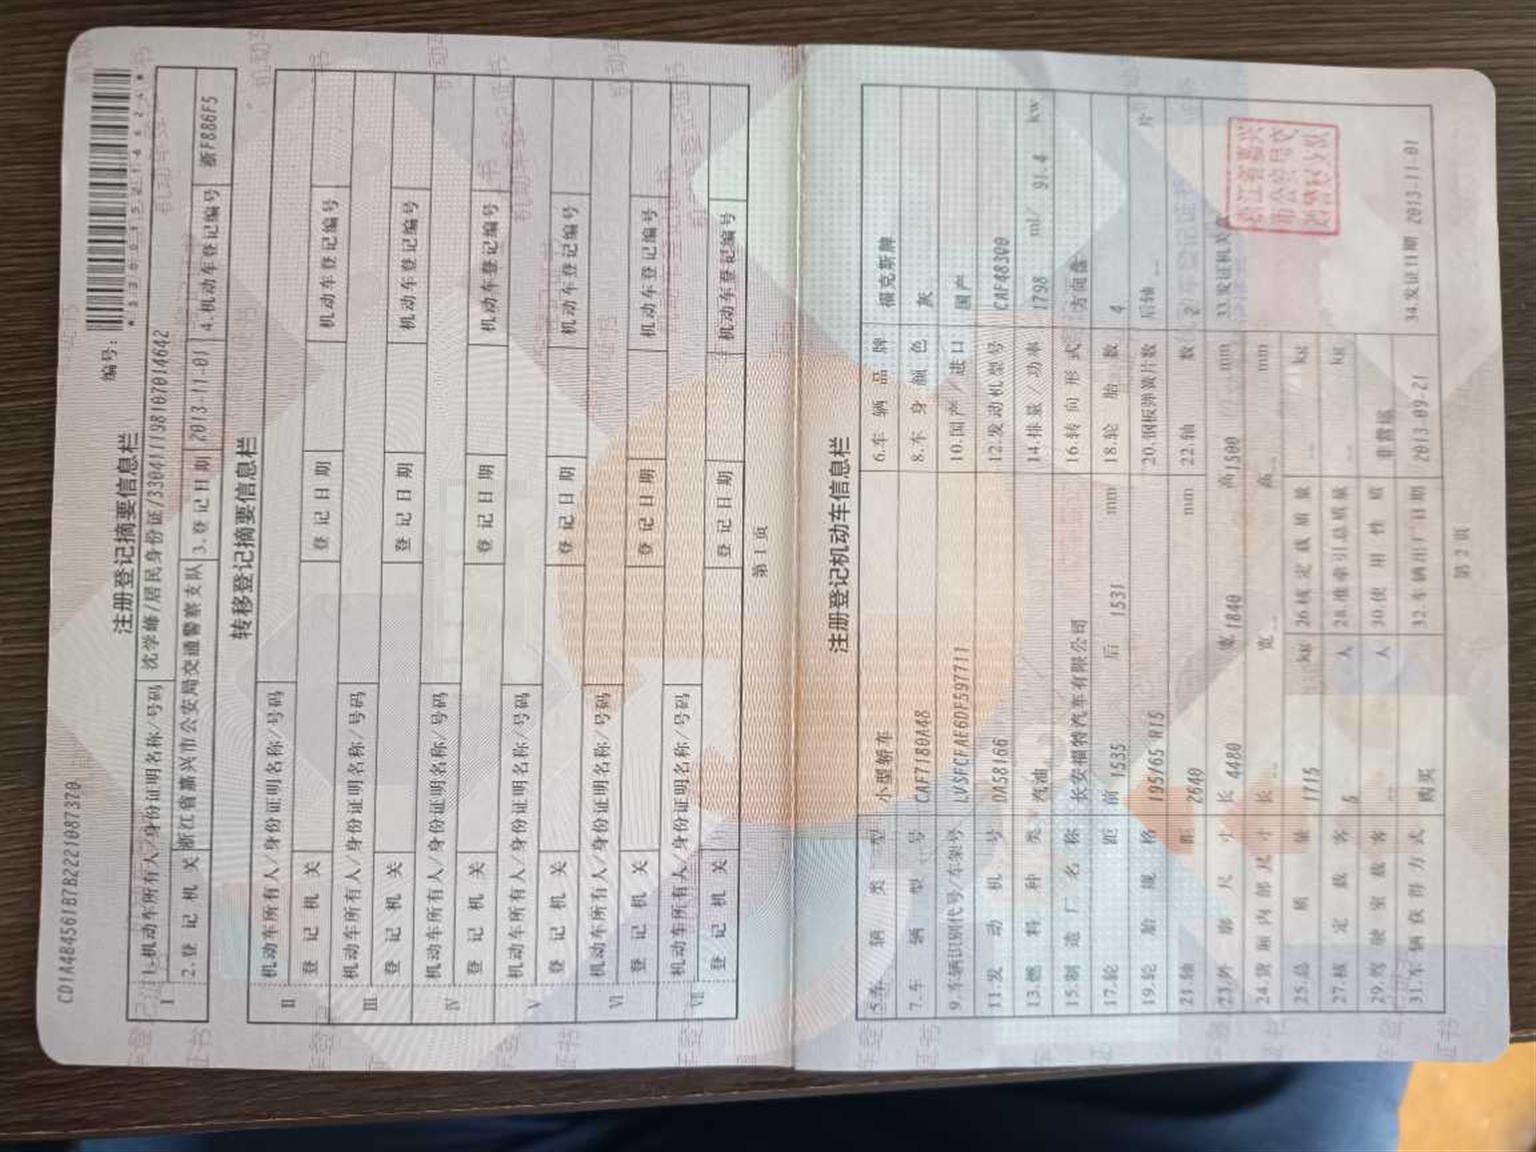 CD1A4B4561B7B2221087370
编号:
*3300135214624*
注册登记摘要信息栏
I 1.机动车所有人/身份证明名称/号码 沈学峰/居民身份证/330411198107014642
2.登记机关 浙江省嘉兴市公安局交通警察支队 3.登记日期 2013-11-01 4.机动车登记编号 浙F886F5
转移登记摘要信息栏
II 机动车所有人/身份证明名称/号码
登记机关 登记日期 机动车登记编号
III 机动车所有人/身份证明名称/号码
登记机关 登记日期 机动车登记编号
IV 机动车所有人/身份证明名称/号码
登记机关 登记日期 机动车登记编号
V 机动车所有人/身份证明名称/号码
登记机关 登记日期 机动车登记编号
VI 机动车所有人/身份证明名称/号码
登记机关 登记日期 机动车登记编号
VII 机动车所有人/身份证明名称/号码
登记机关 登记日期 机动车登记编号
第1页
注册登记机动车信息栏
5.车辆类型 小型轿车 6.车辆品牌 福克斯牌
7.车辆型号 CAF7180A48 8.车身颜色 灰
9.车辆识别代号/车架号 LVSFCFAE6DF597711 10.国产/进口 国产
11.发动机号 DA58166 12.发动机型号 CAF483Q0
13.燃料种类 汽油 14.排量/功率 1798 ml/ 91.4 kw
15.制造厂名称 长安福特汽车有限公司 16.转向形式 方向盘
17.轮距 前 1535 后 1531 mm 18.轮胎数 4
19.轮胎规格 195/65 R15 20.钢板弹簧片数 后轴 -- 片
21.轴距 2640 mm 22.轴数 2
23.外廓尺寸 长 4480 宽 1840 高 1500 mm 33.发证机关章
24.货厢内部尺寸 长 -- 宽 -- 高 -- mm
25.总质量 1715 kg 26.核定载质量 -- kg
27.核定载客 5 人 28.准牵引总质量 -- kg
29.驾驶室载客 -- 人 30.使用性质 非营运
31.车辆获得方式 购买 32.车辆出厂日期 2013-09-21 34.发证日期 2013-11-01
第2页